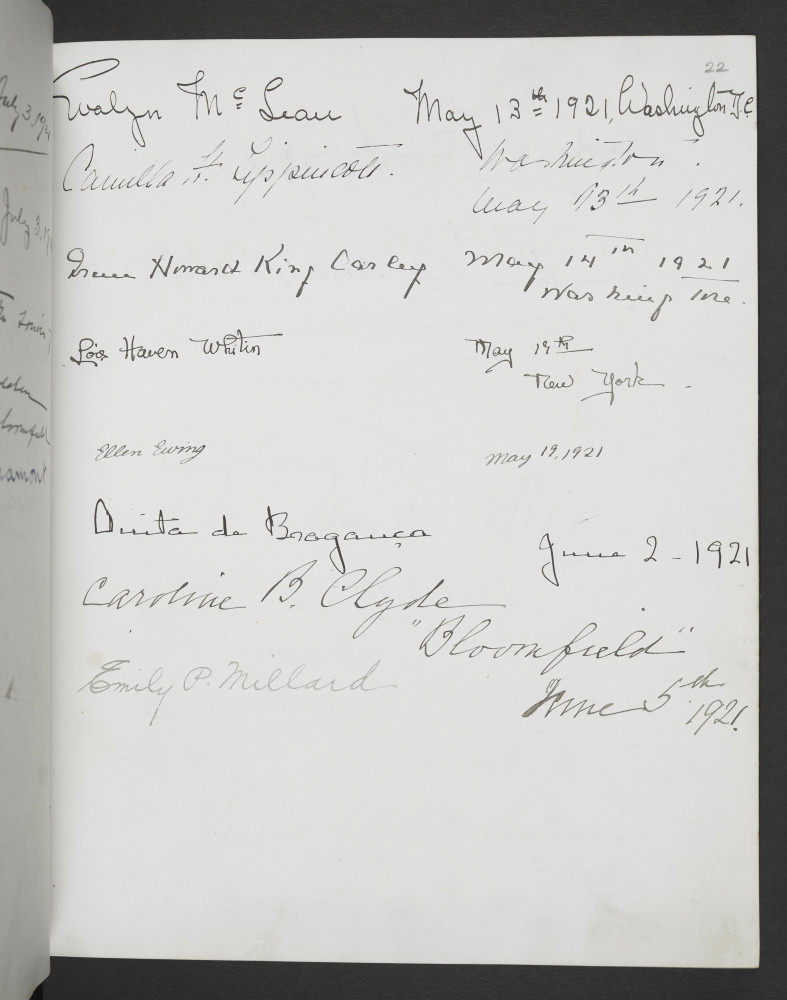 July 3, 19
July 3, 19
22
Evalyn McLean May 13th 1921, Washington D.C.
Camilla H. Lippincott. Washington.
May 13th 1921.
Howard King Carley May 14th 1921
Washington.
Lois Haven Whitin May 19th
New York.
Ellen Ewing May 19, 1921
Anita de Bragança
June 2 - 1921
Caroline B. Clyde
"Bloomfield"
Emily P. Millard
June 5th
1921.